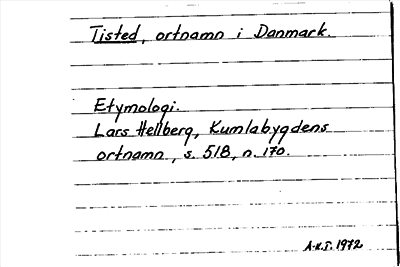 Tisted, ortnamn i Danmark.
Etymologi.
Lars Hellberg, Kumlabygdens
ortnamn, s. 518, n. 170.
A-K.T. 1972